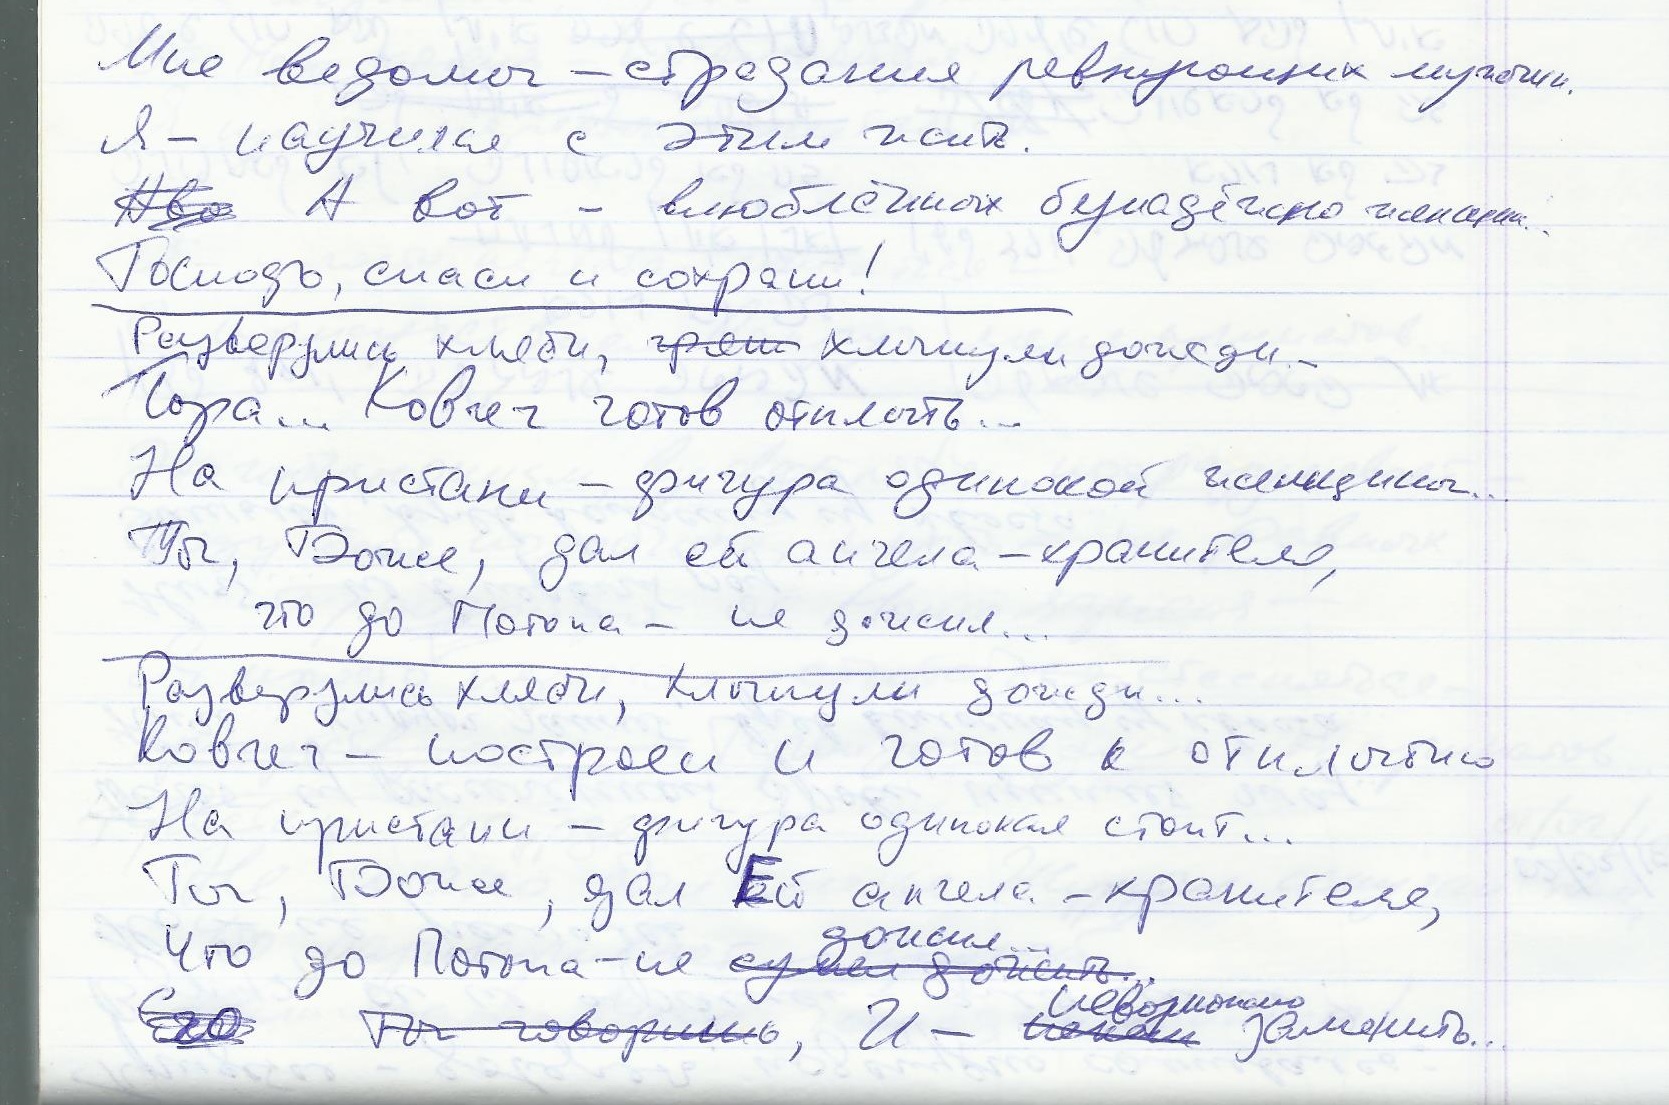 Мне ведомы – страдания ревнующих мужчин.
Я – научился с этим жить.
А вот – влюблённых безнадёжно женщин...
Господь, спаси и сохрани!
Разверзлись хляби, хлынули дожди...
Пора... Ковчег готов отплыть...
На пристани – фигура одинокой женщины...
Ты, Боже, дал ей ангела-хранителя,
что до Потопа – не дожил...
Разверзлись хляби, хлынули дожди...
Ковчег – построен и готов к отплытию
На пристани – фигура одинокая стоит...
Ты, Боже, дал Ей ангела-хранителя,
Что до Потопа – не сумел дожить... дожил...
Его Ты говоришь, И – некем невозможно заменить...